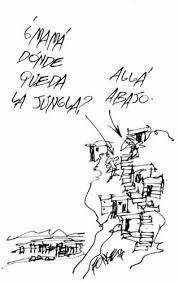 ¿MAMÁ
DÓNDE
QUEDA
LA JUNGLA?
ALLÁ
ABAJO.